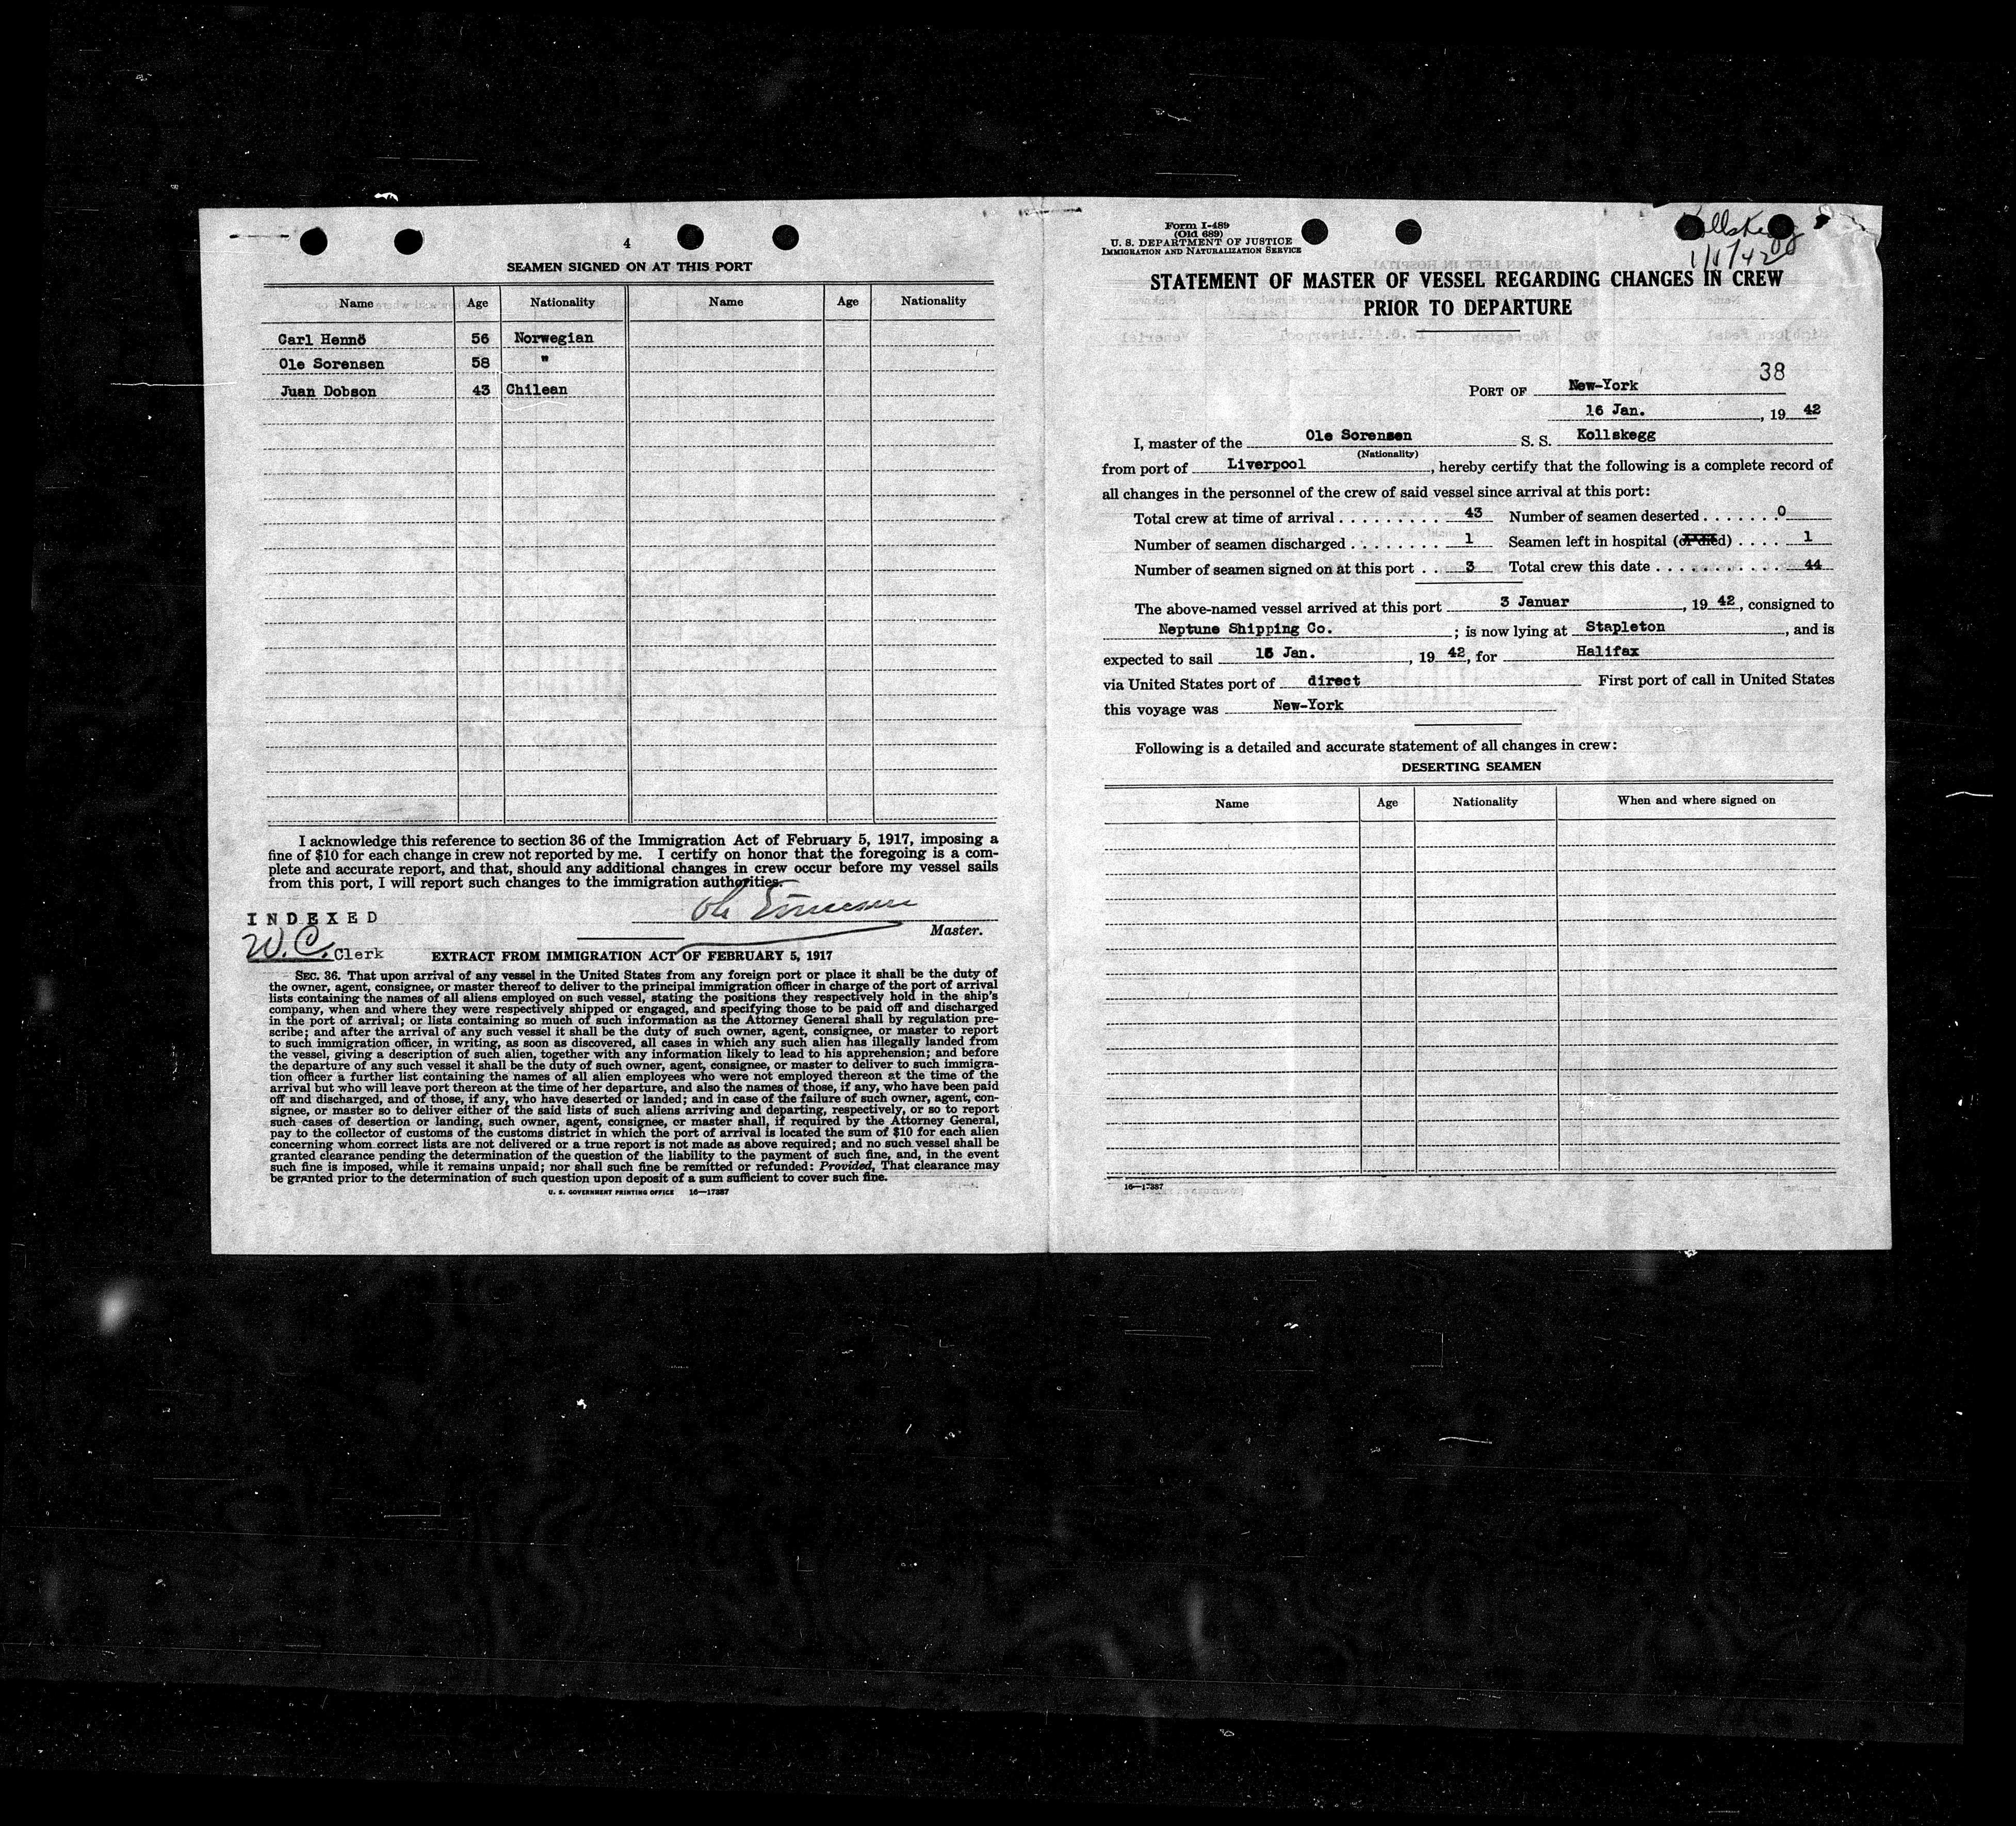 4
SEAMEN SIGNED ON AT THIS PORT
Name Age Nationality Name Age Nationality
Carl Hennö 56 Norwegian
Ole Sorensen 58 "
Juan Dobson 43 Chilean
I acknowledge this reference to section 36 of the Immigration Act of February 5, 1917, imposing a
fine of $10 for each change in crew not reported by me. I certify on honor that the foregoing is a com-
plete and accurate report, and that, should any additional changes in crew occur before my vessel sails
from this port, I will report such changes to the immigration authorities.
Ole Sorensen
Master.
INDEXED
W.C. Clerk
EXTRACT FROM IMMIGRATION ACT OF FEBRUARY 5, 1917
SEC. 36. That upon arrival of any vessel in the United States from any foreign port or place it shall be the duty of
the owner, agent, consignee, or master thereof to deliver to the principal immigration officer in charge of the port of arrival
lists containing the names of all aliens employed on such vessel, stating the positions they respectively hold in the ship's
company, when and where they were respectively shipped or engaged, and specifying those to be paid off and discharged
in the port of arrival; or lists containing so much of such information as the Attorney General shall by regulation pre-
scribe; and after the arrival of any such vessel it shall be the duty of such owner, agent, consignee, or master to report
to such immigration officer, in writing, as soon as discovered, all cases in which any such alien has illegally landed from
the vessel, giving a description of such alien, together with any information likely to lead to his apprehension; and before
the departure of any such vessel it shall be the duty of such owner, agent, consignee, or master to deliver to such immigra-
tion officer a further list containing the names of all alien employees who were not employed thereon at the time of the
arrival but who will leave port thereon at the time of her departure, and also the names of those, if any, who have been paid
off and discharged, and of those, if any, who have deserted or landed; and in case of the failure of such owner, agent, con-
signee, or master so to deliver either of the said lists of such aliens arriving and departing, respectively, or so to report
such cases of desertion or landing, such owner, agent, consignee, or master shall, if required by the Attorney General,
pay to the collector of customs of the customs district in which the port of arrival is located the sum of $10 for each alien
concerning whom correct lists are not delivered or a true report is not made as above required; and no such vessel shall be
granted clearance pending the determination of the question of the liability to the payment of such fine, and, in the event
such fine is imposed, while it remains unpaid; nor shall such fine be remitted or refunded: Provided, That clearance may
be granted prior to the determination of such question upon deposit of a sum sufficient to cover such fine.
U. S. GOVERNMENT PRINTING OFFICE 16—17387
Form I-489
(Old 689)
U. S. DEPARTMENT OF JUSTICE
IMMIGRATION AND NATURALIZATION SERVICE
STATEMENT OF MASTER OF VESSEL REGARDING CHANGES IN CREW
PRIOR TO DEPARTURE
38
PORT OF New-York
16 Jan., 19 42
I, master of the Ole Sorensen S. S. Kollskegg
(Nationality)
from port of Liverpool, hereby certify that the following is a complete record of
all changes in the personnel of the crew of said vessel since arrival at this port:
Total crew at time of arrival 43 Number of seamen deserted 0
Number of seamen discharged 1 Seamen left in hospital (or died) 1
Number of seamen signed on at this port 3 Total crew this date 44
The above-named vessel arrived at this port 3 Januar, 19 42, consigned to
Neptune Shipping Co.; is now lying at Stapleton, and is
expected to sail 16 Jan., 19 42, for Halifax
via United States port of direct First port of call in United States
this voyage was New-York
Following is a detailed and accurate statement of all changes in crew:
DESERTING SEAMEN
Name Age Nationality When and where signed on
16—17387